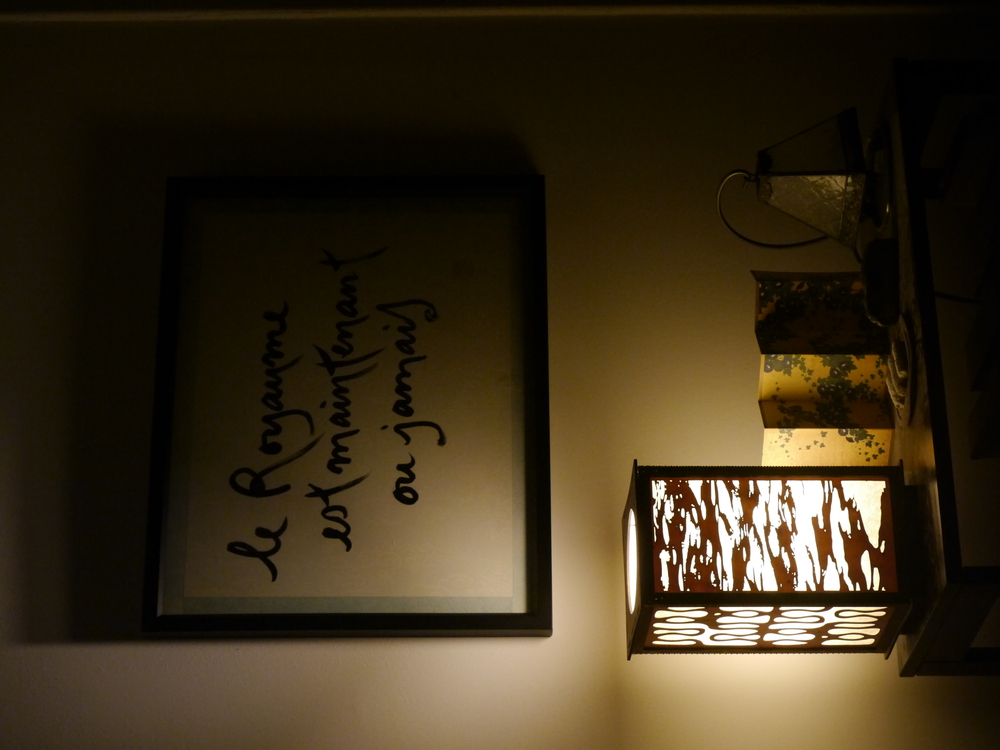 le Royaume
est maintenant
ou jamais